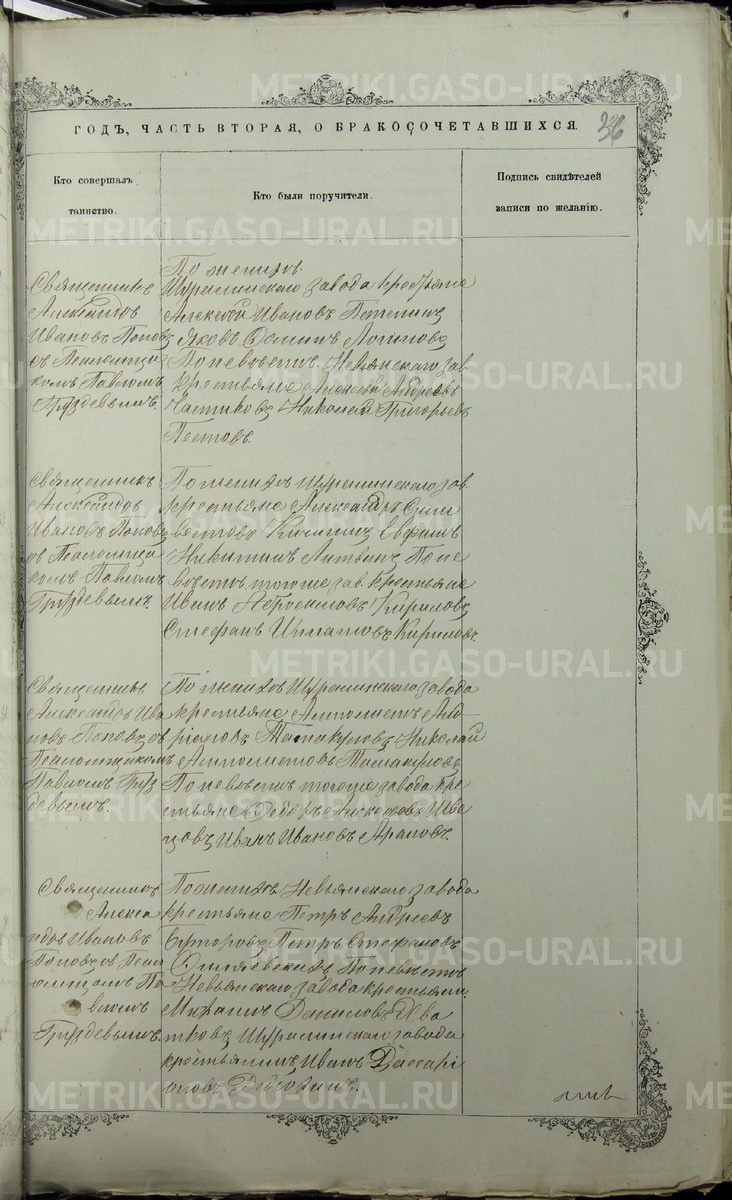 METRIKI.GASO-URAL.RU
36
ГОДЪ, ЧАСТЬ ВТОРАЯ, О БРАКОСОЧЕТАВШИХСЯ.
Кто совершалъ
таинство.
Кто были поручители.
Подпись свидѣтелей
записи по желанію.
Священникъ
Александръ
Ивановъ Поповъ
съ Псаломщи
комъ Павломъ
Груздевымъ.
По женихѣ
Шуралинскаго завода крестьяне
Алексѣй Ивановъ
Яковъ Логиновъ
По невѣстѣ Невьянскаго зав.
крестьяне Алексѣй Андреевъ
Частиковъ Николай Григорьевъ
Пестовъ.
Священникъ
Александръ
Ивановъ Поповъ
съ Псаломщи
комъ Павломъ
Груздевымъ.
По женихѣ Шуралинскаго зав.
крестьяне Александръ Силь
вестровъ Ефимъ
Никитинъ По не
вѣстѣ тогоже зав. крестьяне
Иванъ Кириловъ
Стефанъ Игнатовъ Кириловъ
Священникъ
Александръ Ива
новъ Поповъ съ
Псаломщикомъ
Павломъ Груз
девымъ.
По женихѣ Шуралинскаго завода
крестьяне
Николай
По невѣстѣ тогоже завода кре
стьяне Ѳедоръ Шве
цовъ Иванъ Ивановъ Араповъ.
Священникъ
Алекса
ндръ Ивановъ
Поповъ съ Псал
омщикомъ Па
вломъ
Груздевымъ.
По женихѣ Невьянскаго завода
крестьяне Петръ Андреевъ
Буторовъ Петръ Стефановъ
По невѣстѣ
Невьянскаго завода крестьян.
Михаилъ Даниловъ Девя
тковъ Шуралинскаго завода
крестьянинъ Иванъ Вассарі
оновъ